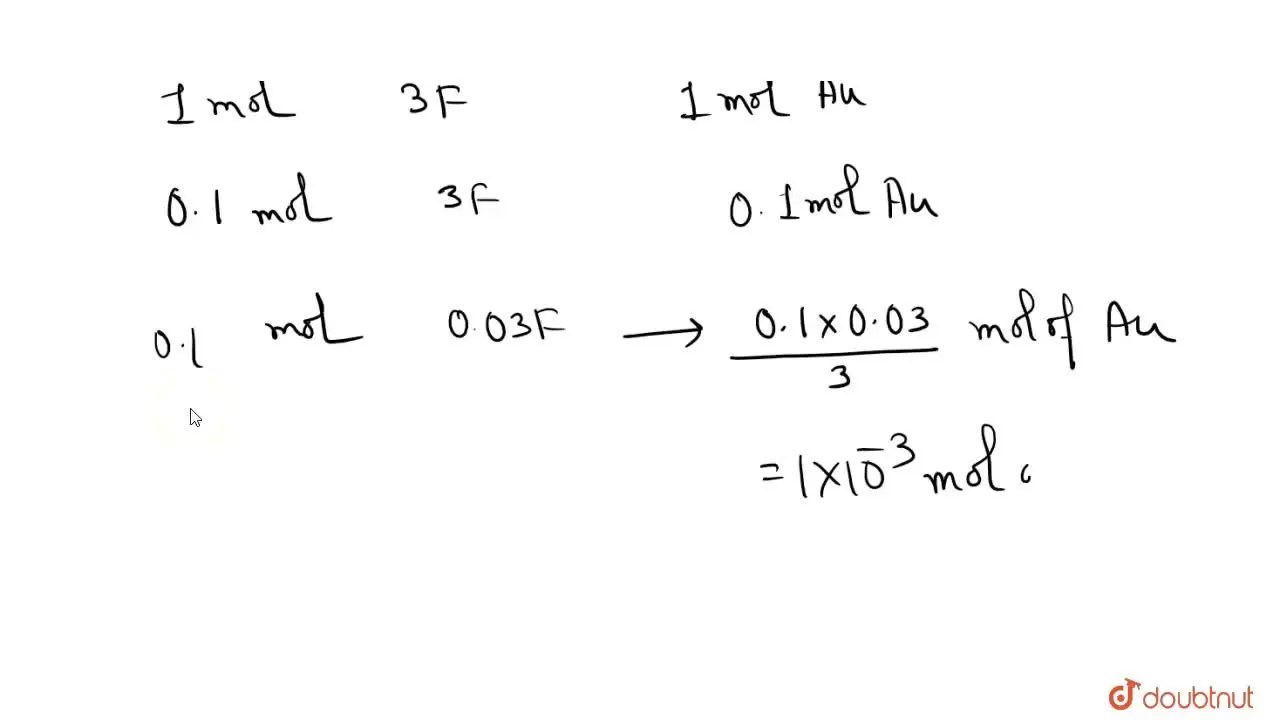 1 mol 3F 1 mol Au
0.1 mol 3F 0.1 mol Au
0.1 mol 0.03F → 0.1 × 0.03 mol of Au
3
= 1 × 10⁻³ mol
doubtnut